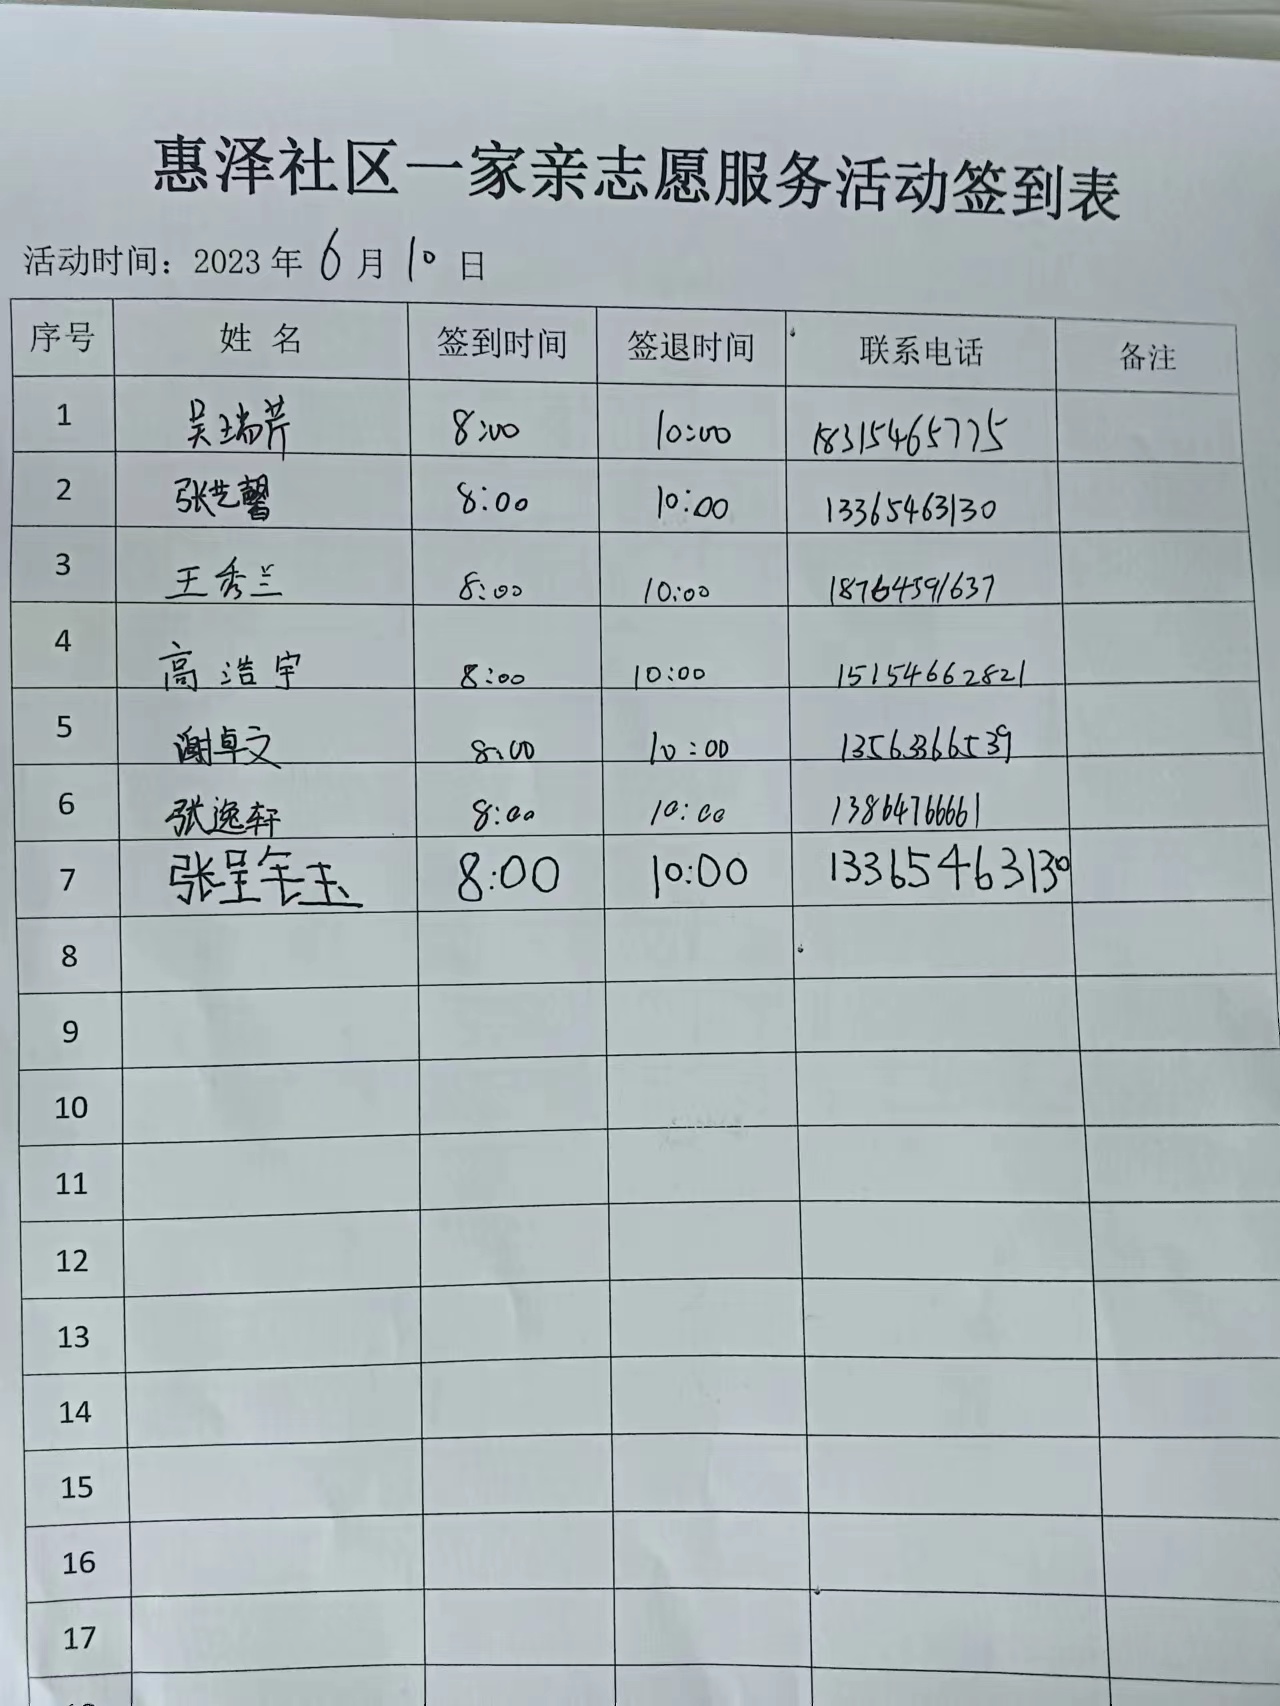 惠泽社区一家亲志愿服务活动签到表
活动时间：2023年6月10日
序号 姓名 签到时间 签退时间 联系电话 备注
1 吴瑞芹 8:00 10:00 18315465775
2 张艺馨 8:00 10:00 13365463130
3 王秀兰 8:00 10:00 18764591637
4 高浩宇 8:00 10:00 15154662821
5 谢卓文 8:00 10:00 13563366539
6 张逸轩 8:00 10:00 13864766661
7 张 8:00 10:00 13365463130
8
9
10
11
12
13
14
15
16
17